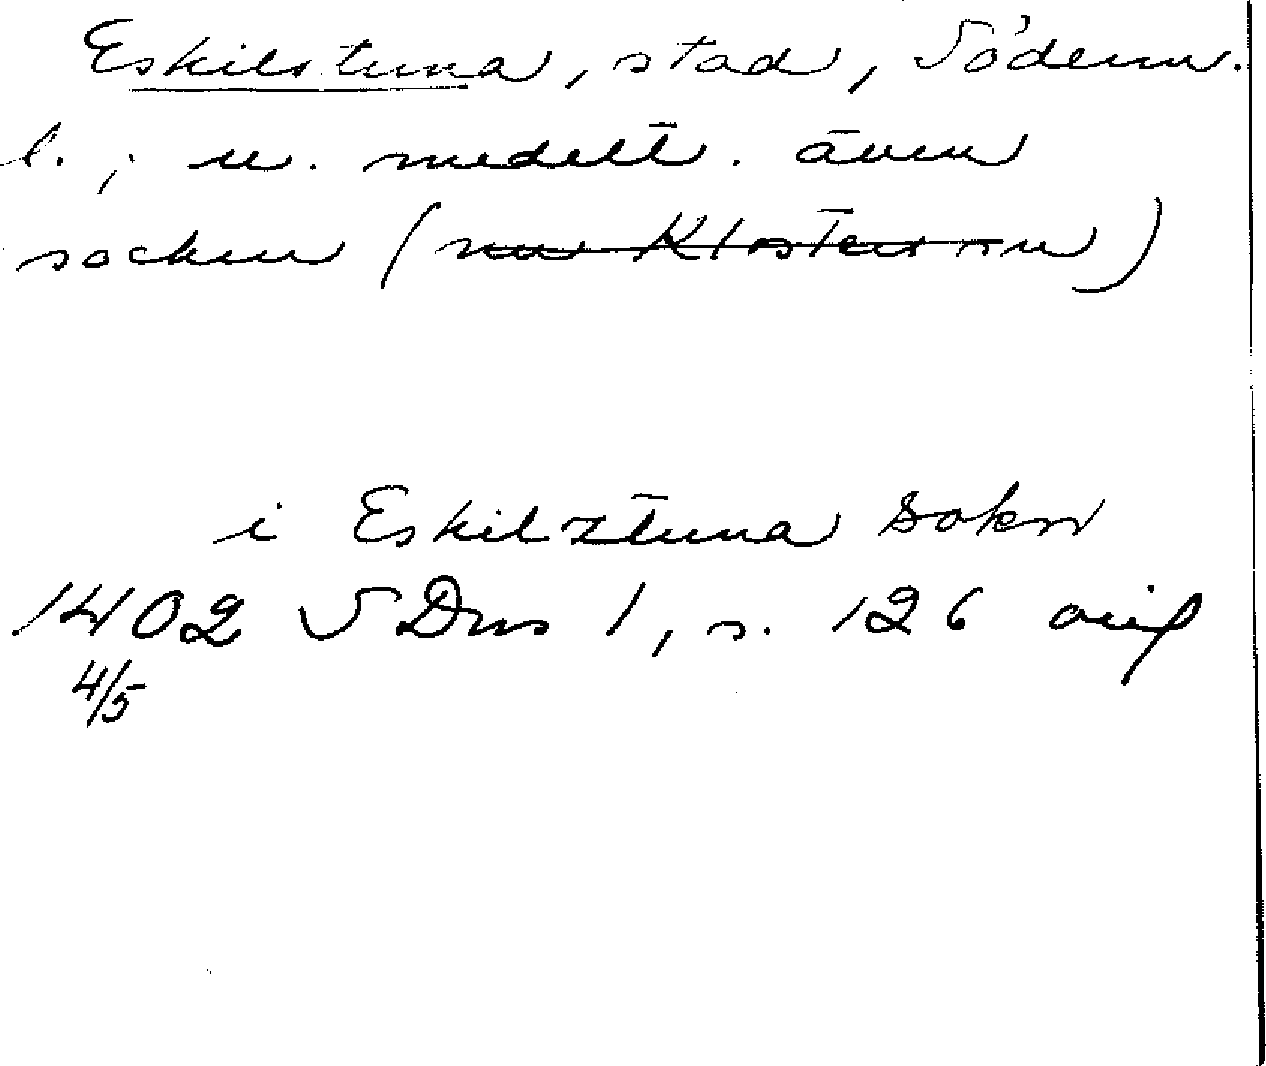 Eskilstuna, stad, Söderm.
l.; u. medelt. även
socken (nu Klosters sn)
i Eskilztuna sokn
1402 SDns 1, s. 126 orig
4/5